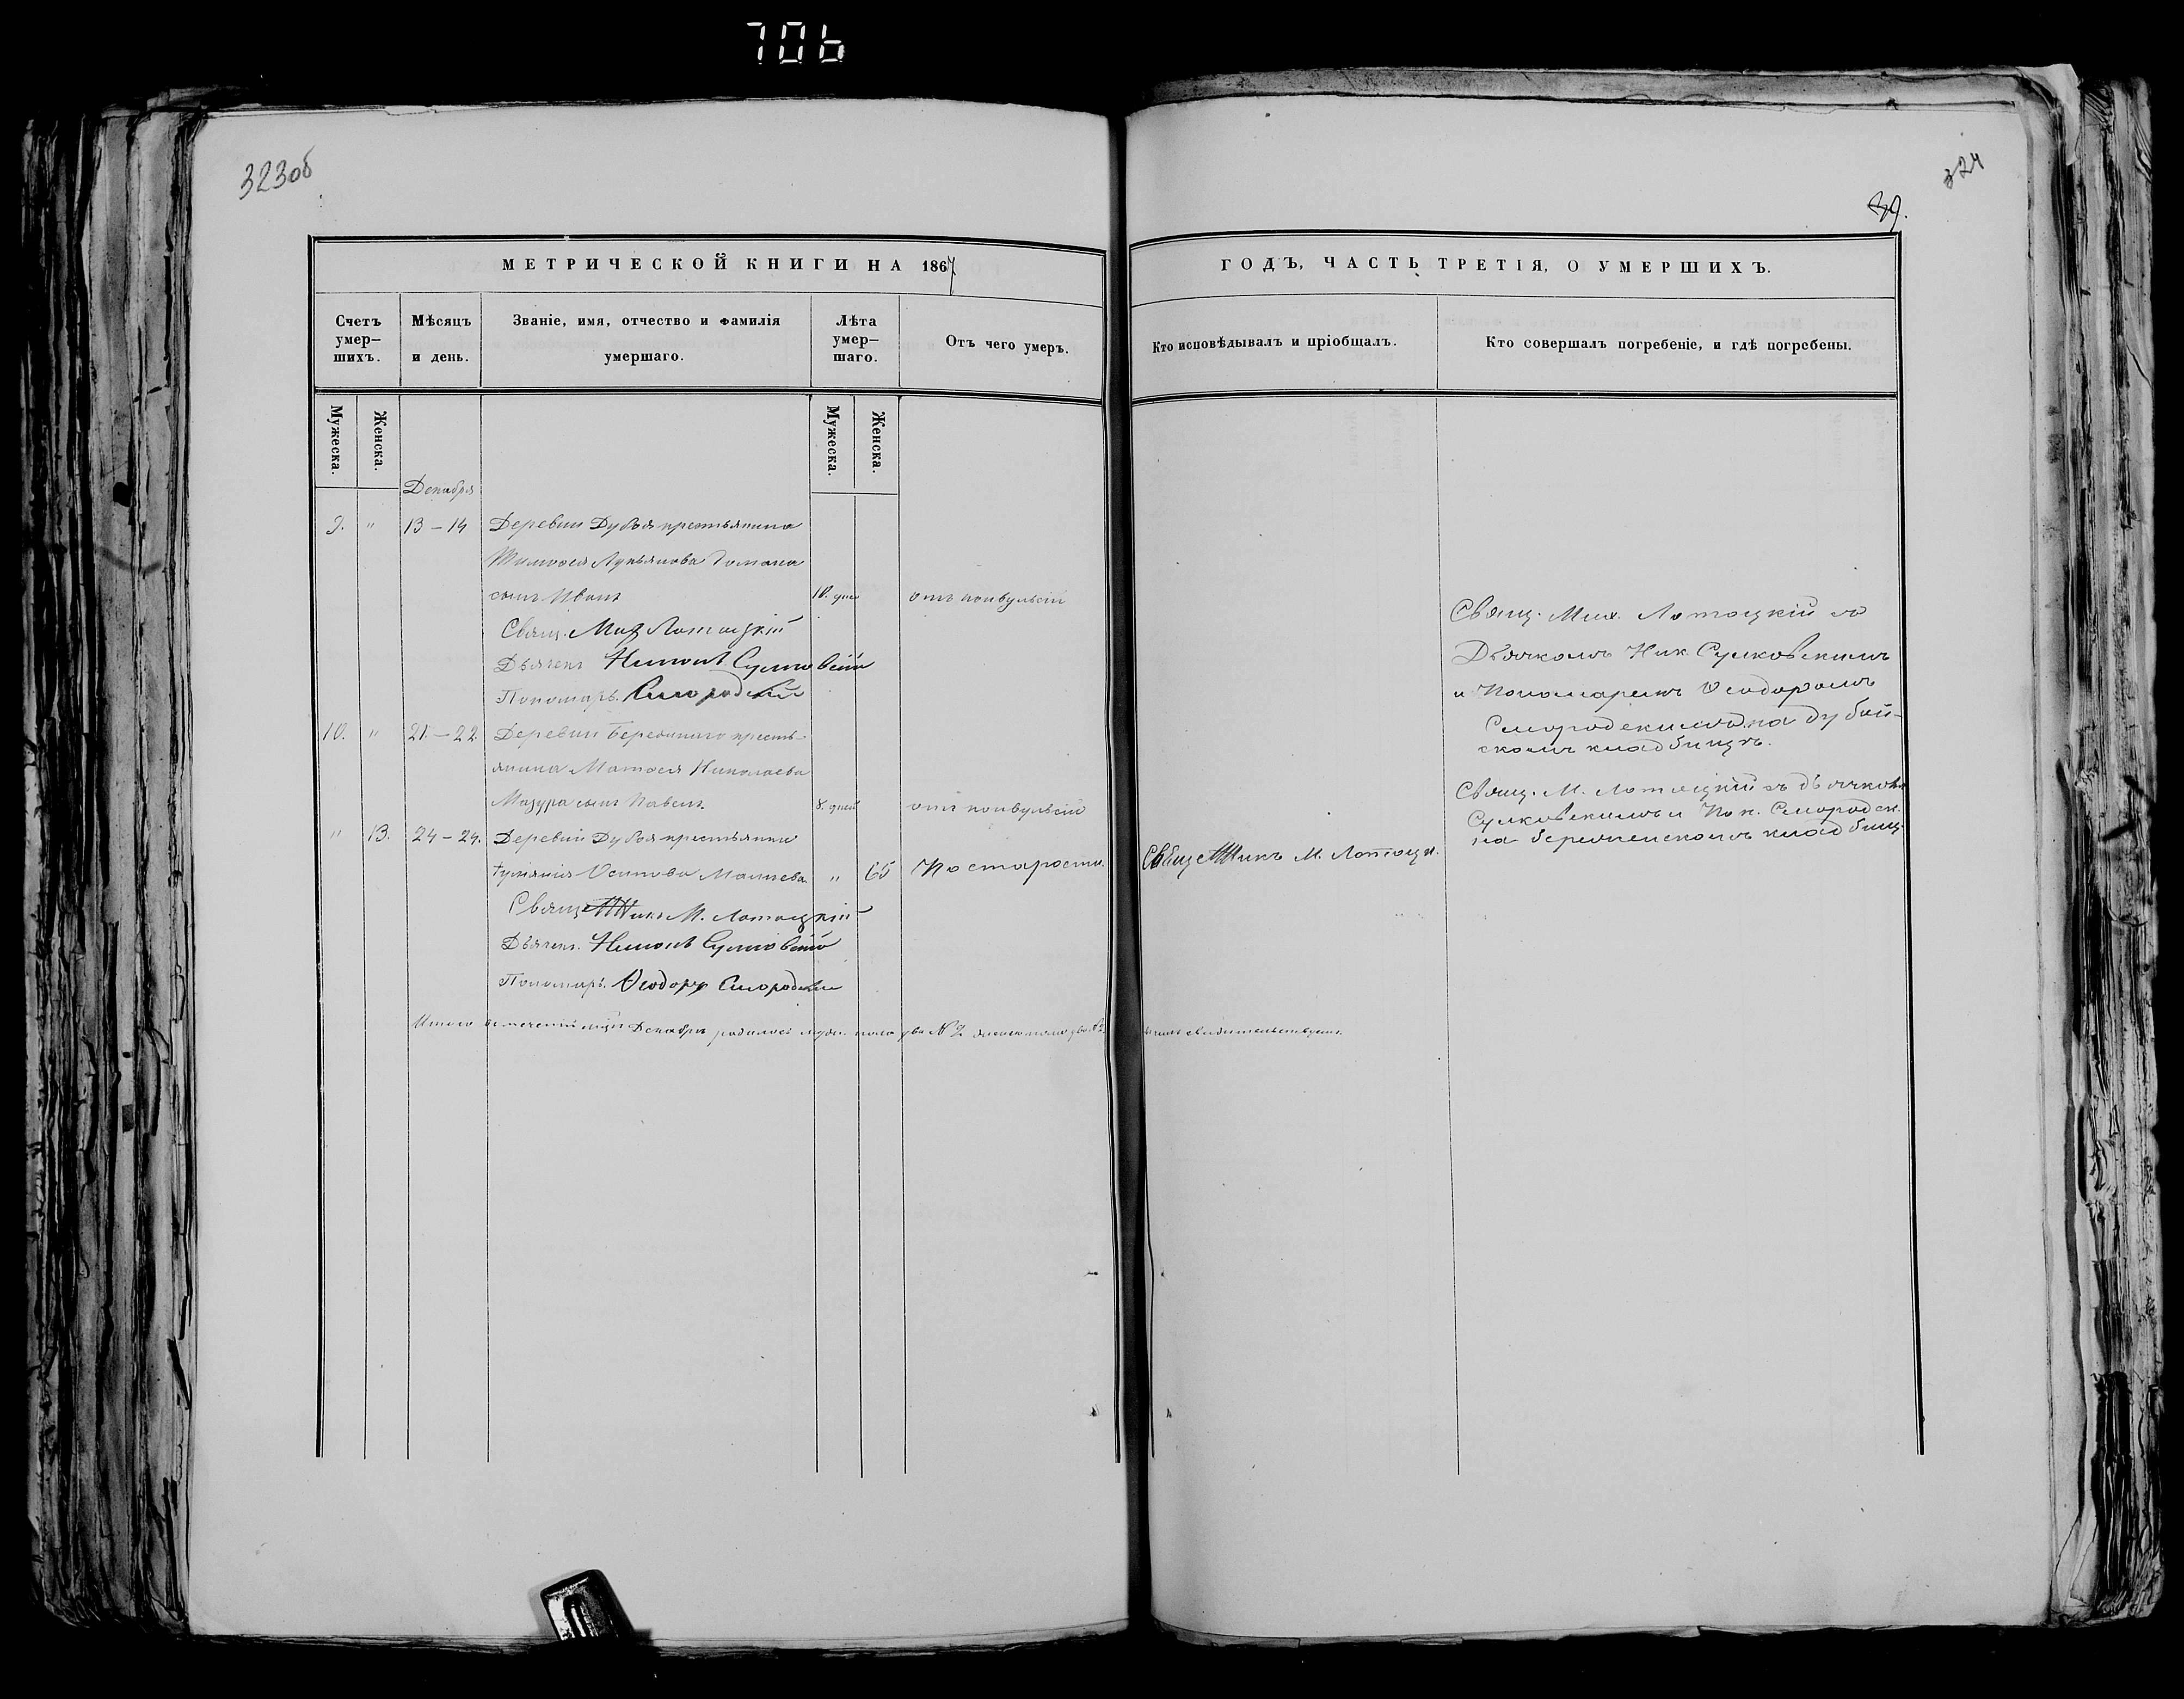 706
323об
324
39.
МЕТРИЧЕСКОЙ КНИГИ НА 1867
ГОДЪ, ЧАСТЬ ТРЕТІЯ, О УМЕРШИХЪ.
Счетъ умер-
шихъ.
Мѣсяцъ
и день.
Званіе, имя, отчество и фамилія
умершаго.
Лѣта
умер-
шаго.
Отъ чего умеръ.
Кто исповѣдывалъ и пріобщалъ.
Кто совершалъ погребеніе, и гдѣ погребены.
Мужеска.
Женска.
Мужеска.
Женска.
Декабря
9. " 13 – 14 Деревни Дубоя крестьянина
Тимоѳея Лукьянова
сынъ Иванъ 10. дней отъ конвульсій
Свящ. Мих Лотоцкій
Дьячекъ
Пономарь Смородскій
Свящ. Мих. Лотоцкій съ
Дьячкомъ Ник. Сулковскимъ
и Пономаремъ Ѳеодоромъ
Смородскимъ на Дубой-
скомъ кладбищѣ.
10. " 21 – 22 Деревни крестъ-
янина Матѳея Николаева
Мазура сынъ Павелъ 8. дней отъ конвульсій
Свящ. М. Лотоцкій съ дьячкомъ
Сулковскимъ и Пон. Смородск.
на кладбищ.
" 13. 24 – 24. Деревни Дубоя крестьянка
Осипова " 65 По старости.
Свящ М. Лотоцк.
Свящ М. Лотоцкій
Дьячекъ.
Пономарь. Ѳеодоръ Смородскій
Итого въ теченіи Декабря родилось муж. пола два № 2 женск пола два № 2
въ чемъ свидетельствуемъ.